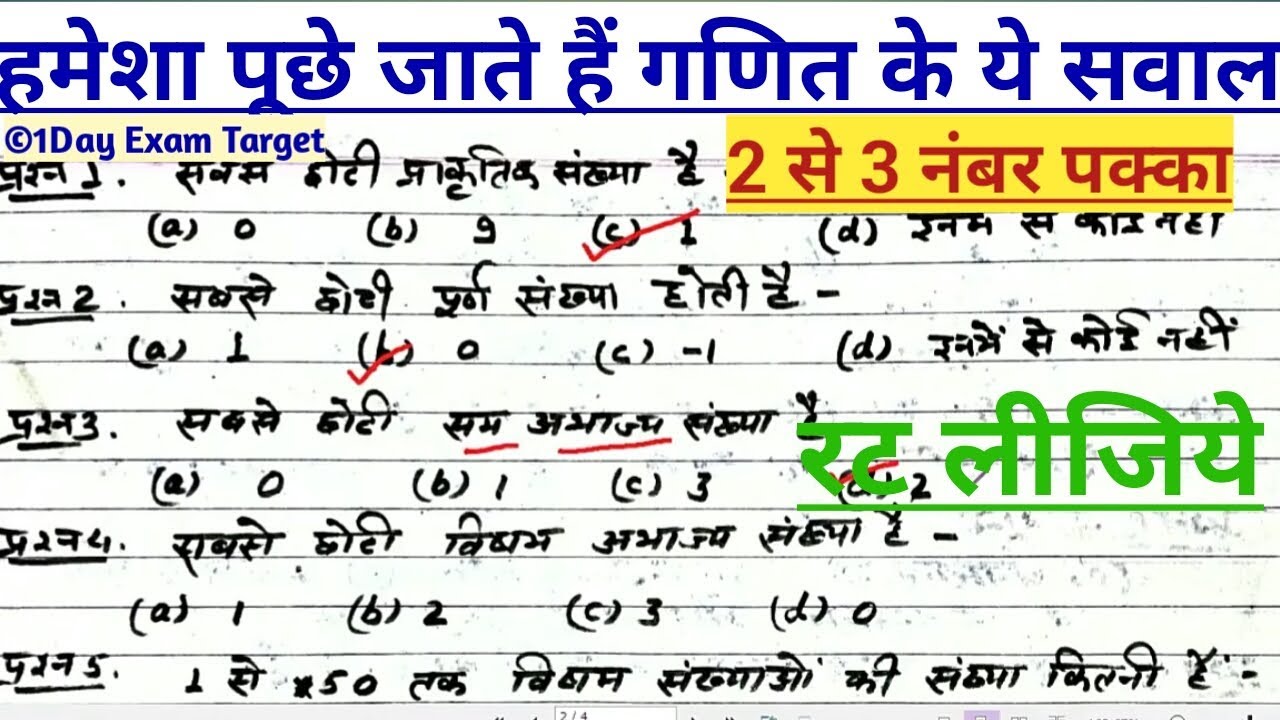 हमेशा पूछे जाते हैं गणित के ये सवाल
©1Day Exam Target
2 से 3 नंबर पक्का
प्रश्न 1. सबसे छोटी प्राकृतिक संख्या है
(a) 0 (b) 9 (c) 1 (d) इनमें से कोई नहीं
प्रश्न 2. सबसे छोटी पूर्ण संख्या होती है -
(a) 1 (b) 0 (c) -1 (d) इनमें से कोई नहीं
प्रश्न 3. सबसे छोटी सम अभाज्य संख्या है
रट लीजिये
(a) 0 (b) 1 (c) 3 (d) 2
प्रश्न 4. सबसे छोटी विषम अभाज्य संख्या है -
(a) 1 (b) 2 (c) 3 (d) 0
प्रश्न 5. 1 से 50 तक विषम संख्याओं की संख्या कितनी हैं -
2 / 4